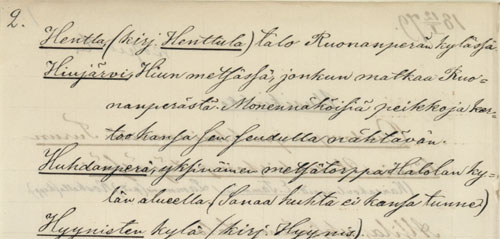 2.
Hentta (kirj. Henttula) talo Ruonanperän kylässä
Hiujärvi, Hiun metsässä, jonkun matkaa Ruo-
nanperästä. Monennäköisiä peikkoja ker-
too kansa sen seudulta nähtävän.
Huhdanperä, yksinäinen metsätorppa Halolan ky-
län alueella (Sanaa huhta ei kansa tunne)
Hyynisten kylä (kirj. Hyynis).